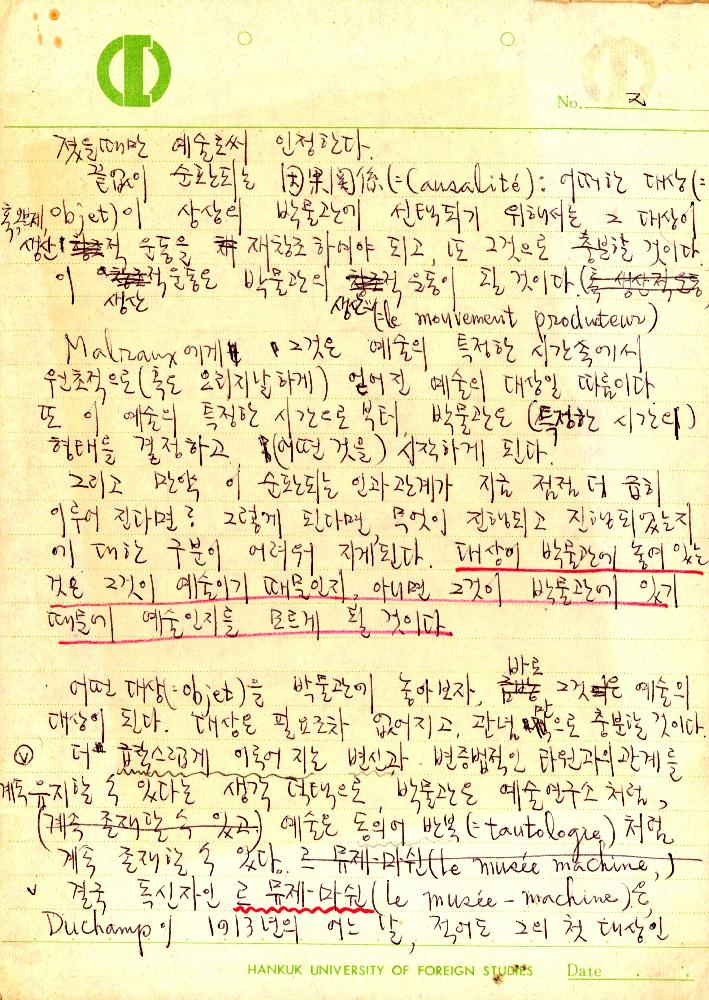 No. 2
졌을때만 예술로써 인정한다.
끝없이 순환되는 因果関係(=Causalité): 어떠한 대상(=
혹은 objet)이 상상의 박물관에 선택되기 위해서는 그 대상이
생산적 운동을 재창조하여야 되고, 또 그것으로 충분할 것이다.
이 생산적 운동은 박물관의 생산적 운동이 될 것이다. (혹 생산적 운동,
(=le mouvement producteur)
Malraux에게 그것은 예술의 특정한 시간속에서
원초적으로(혹은 오리지날하게) 얻어진 예술의 대상일 따름이다
또 이 예술의 특정한 시간으로 부터, 박물관은 (특정한 시간의)
형태를 결정하고 (어떤 것을) 시작하게 된다.
그리고 만약 이 순환되는 인과관계가 지금 점점 더 급히
이루어 진다면, 그렇게 된다면, 무엇이 진행되고 진행되었는지
에 대한 구분이 어려워 지게 된다. 대상이 박물관에 놓여 있는
것은 그것이 예술이기 때문인지, 아니면 그것이 박물관에 있기
때문에 예술인지를 모르게 될 것이다
바로
어떤 대상(=objet)을 박물관에 놓아보자, 그것은 예술의
대상이 된다. 대상은 필요조차 없어지고, 관념만으로 충분할 것이다.
더 급작스럽게 이루어 지는 변신과 변증법적인 타원과의 관계를
계속 유지할 수 있다는 생각 덕택으로, 박물관은 예술연구소 처럼,
(계속 존재할 수 있고) 예술은 동의어 반복(=tautologie) 처럼
계속 존재할 수 있다. 르 뮤제-마쉰(le musée machine,)
결국 독신자인 르 뮤제-마쉰(le musée-machine)은,
Duchamp이 1913년의 어느 날, 적어도 그의 첫 대상인
HANKUK UNIVERSITY OF FOREIGN STUDIES Date . .